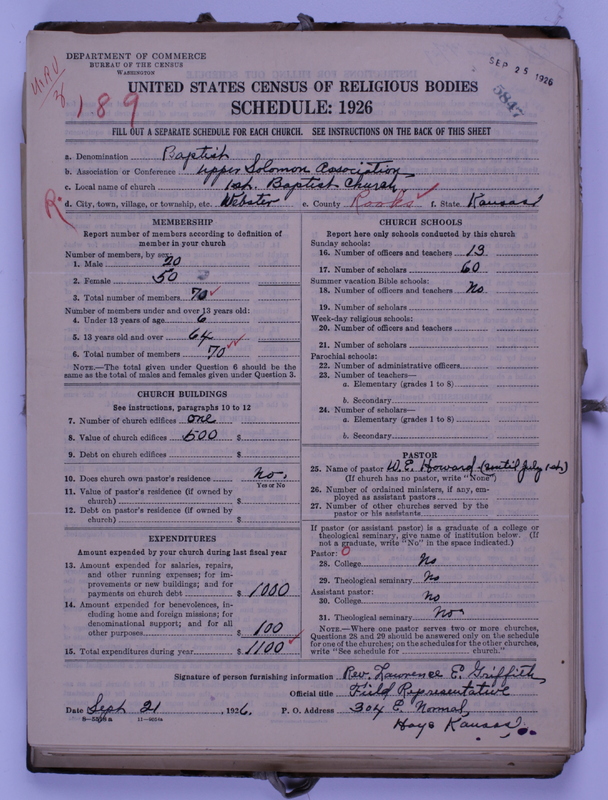 DEPARTMENT OF COMMERCE
BUREAU OF THE CENSUS
WASHINGTON
SEP 25 1926
5847
189
UNITED STATES CENSUS OF RELIGIOUS BODIES
SCHEDULE: 1926
FILL OUT A SEPARATE SCHEDULE FOR EACH CHURCH. SEE INSTRUCTIONS ON THE BACK OF THIS SHEET
a. Denomination Baptist
b. Association or Conference Upper Solomon Association
c. Local name of church 1st. Baptist Church
d. City, town, village, or township, etc. Webster e. County Rooks f. State Kansas
R
MEMBERSHIP
Report number of members according to definition of
member in your church
Number of members, by sex:
1. Male 20
2. Female 50
3. Total number of members 70
Number of members under and over 13 years old:
4. Under 13 years of age 6
5. 13 years old and over 64
6. Total number of members 70
NOTE.—The total given under Question 6 should be
the same as the total of males and females given under Question 3.
CHURCH BUILDINGS
See instructions, paragraphs 10 to 12
7. Number of church edifices one
8. Value of church edifices 500 $
9. Debt on church edifices $
10. Does church own pastor's residence? No.
Yes or No
11. Value of pastor's residence (if owned by
church) $
12. Debt on pastor's residence (if owned by
church) $
EXPENDITURES
Amount expended by your church during last fiscal year
13. Amount expended for salaries, repairs,
and other running expenses; for im-
provements or new buildings; and for
payments on church debt $ 1000
14. Amount expended for benevolences, in-
cluding home and foreign missions; for
denominational support; and for all
other purposes $ 100
15. Total expenditures during year $ 1100
CHURCH SCHOOLS
Report here only schools conducted by this church
Sunday schools:
16. Number of officers and teachers 13
17. Number of scholars 60
Summer vacation Bible schools:
18. Number of officers and teachers No
19. Number of scholars
Week-day religious schools:
20. Number of officers and teachers
21. Number of scholars
Parochial schools:
22. Number of administrative officers
23. Number of teachers—
a. Elementary (grades 1 to 8)
b. Secondary
24. Number of scholars—
a. Elementary (grades 1 to 8)
b. Secondary
PASTOR
25. Name of pastor W. E. Howard (until July 1st)
(If church has no pastor, write "None")
26. Number of ordained ministers, if any, em-
ployed as assistant pastors
27. Number of other churches served by the
pastor or his assistants
If pastor (or assistant pastor) is a graduate of a college or
theological seminary, give name of institution below. (If
not a graduate, write "No" in the space indicated.)
Pastor: 0
28. College No
29. Theological seminary No
Assistant pastor:
30. College No
31. Theological seminary No
NOTE.—Where one pastor serves two or more churches,
Questions 28 and 29 should be answered only on the schedule
for one of the churches; on the schedules for the other churches,
write "See schedule for church."
Signature of person furnishing information Rev. Lawrence E. Griffith
Official title Field Representative
Date Sept 21, 1926. P. O. Address 304 E. Normal,
Hays Kansas.